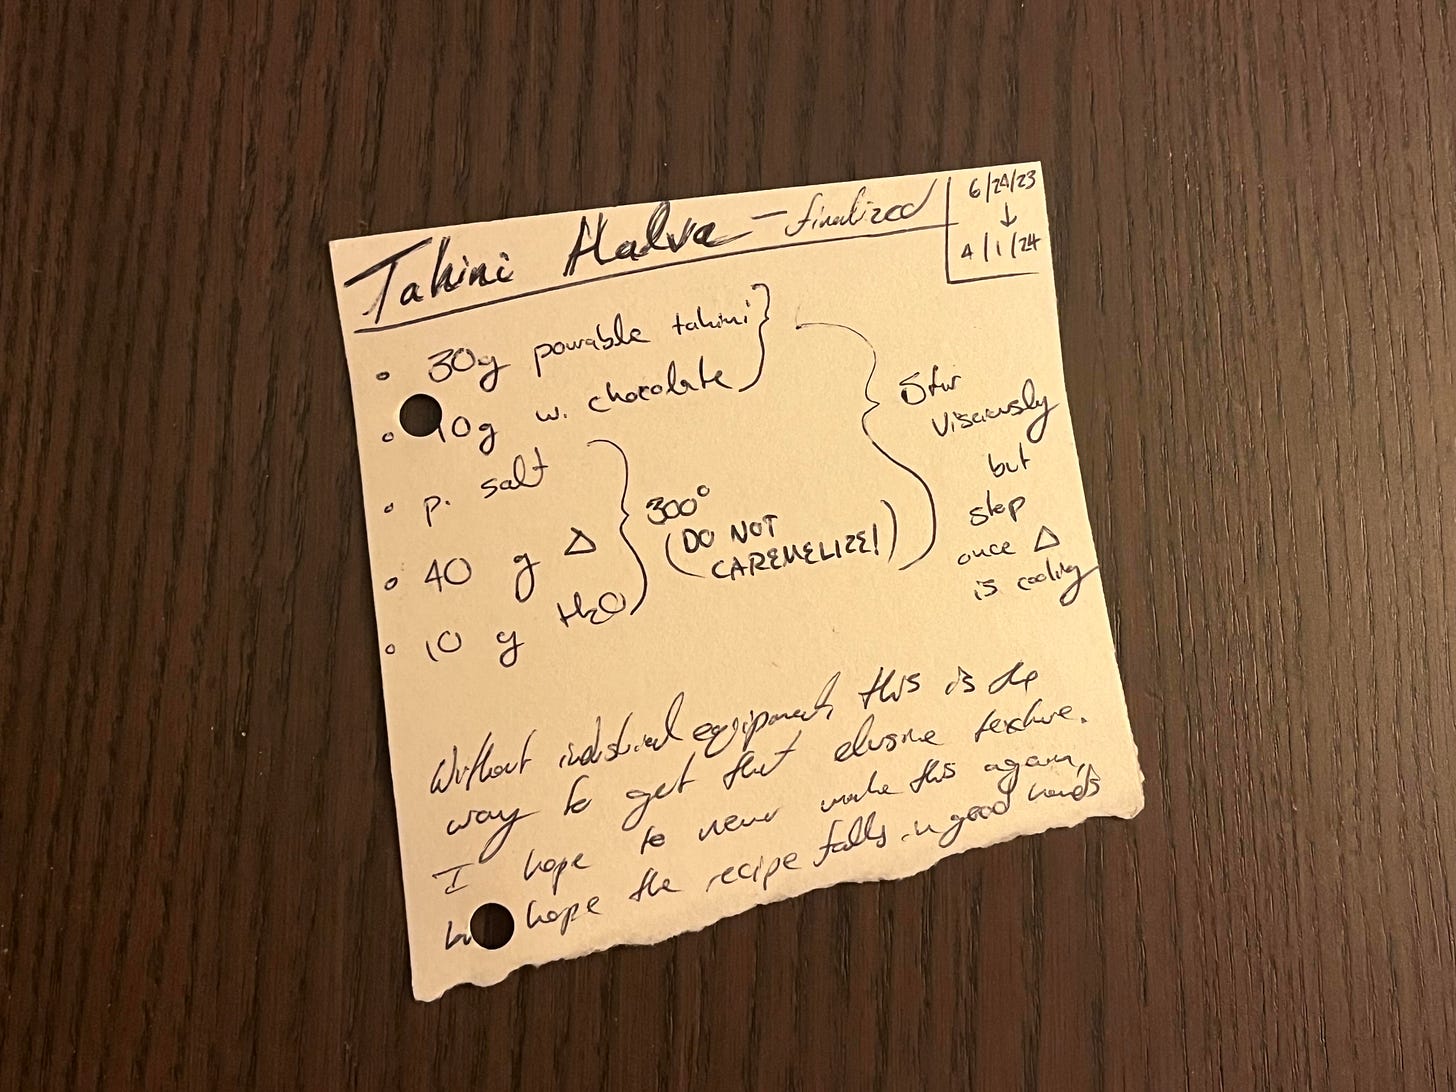 Tahini Halva - finalized
6/24/23
↓
4/1/24
30g pourable tahini
10g w. chocolate
p. salt
40 g Δ
10 g H2O
300°
(DO NOT
CAREMELIZE!)
Stir
Visciously
but
stop
once Δ
is cooling
Without industrial equipment, this is the
way to get that elusive texture.
I hope to never make this again,
hope the recipe falls in good hands